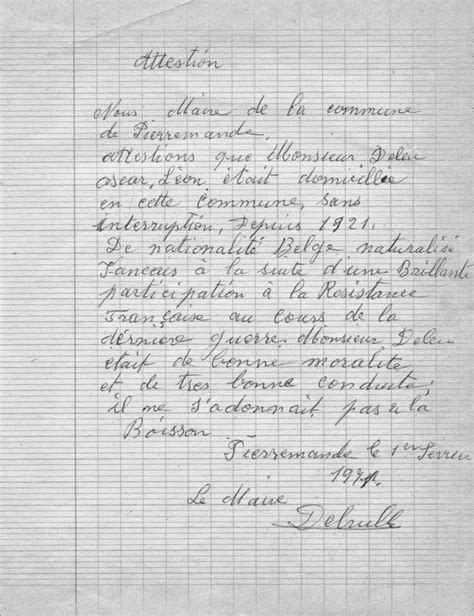 Attestion
Nous Maire de la commune
de Pierremande,
attestions que Monsieur Deleu
oscar, Léon, était domicillée
en cette Commune, sans
interruption, Depuis 1921.
De nationalité Belge naturalisé
Francais à la suite d'une Brillante
participation à la Resistance
Française au cours de la
dernière guerre. Monsieur Deleu
etait de bonne moralité
et de tres bonne conduite,
il ne s'adonnait pas à la
Boisson
Pierremande le 1er Fevrier
Le Maire